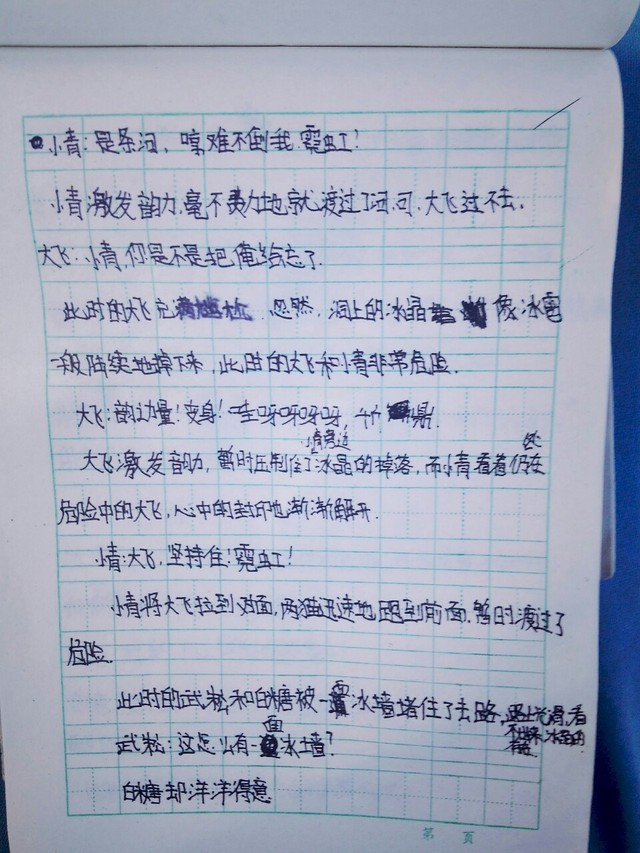 小青：是条河，哼难不倒我.霓虹！
小青激发韵力，毫不费力地就渡过了河，可.大飞过不去。
大飞：小青，你是不是把俺给忘了.
此时的大飞 忽然，洞上的冰晶 像冰雹
一般陆续地掉下来，此时的大飞和小青非常危险.
大飞：韵力量！变身！哇呀呀呀呀，千 鼎.
小青身边 处
大飞激发韵力，暂时压制住了冰晶的掉落，而小青看着仍在
危险中的大飞，心中的封印也渐渐解开.
小青：大飞，坚持住！霓虹！
小青将大飞拉到对面，两猫迅速地跑到前面.暂时渡过了
危险.
此时的武松和白糖被一 冰墙堵住了去路，光滑，看
不出 冰晶的
面
武松：这怎么有一 冰墙？
白糖却洋洋得意
第 页